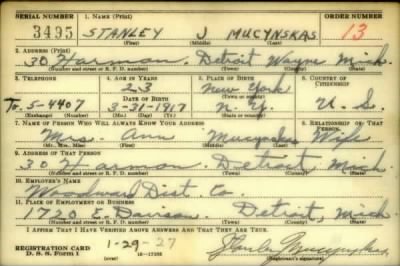 SERIAL NUMBER 1. NAME (Print) ORDER NUMBER
3495 STANLEY J MUCYNSKAS 13
(First) (Middle) (Last)
2. ADDRESS (Print)
30 Harmon. Detroit Wayne Mich.
(Number and street or R. F. D. number) (Town) (County) (State)
3. TELEPHONE 4. AGE IN YEARS 5. PLACE OF BIRTH 6. COUNTRY OF CITIZENSHIP
23 New York
To. 5-4407 DATE OF BIRTH (Town or county)
3-31-1917 N. Y. U. S.
(Exchange) (Number) (Mo.) (Day) (Yr.) (State or country)
7. NAME OF PERSON WHO WILL ALWAYS KNOW YOUR ADDRESS 8. RELATIONSHIP OF THAT PERSON
Mrs Ann Mucynskas Wife
(Mr., Mrs., Miss) (First) (Middle) (Last)
9. ADDRESS OF THAT PERSON
30 Harmon. Detroit, Mich.
(Number and street or R. F. D. number) (Town) (County) (State)
10. EMPLOYER'S NAME
Woodward Dist. Co
11. PLACE OF EMPLOYMENT OR BUSINESS
1720 E. Davison. Detroit, Mich.
(Number and street or R. F. D. number) (Town) (County) (State)
I AFFIRM THAT I HAVE VERIFIED ABOVE ANSWERS AND THAT THEY ARE TRUE.
1-29-27
REGISTRATION CARD
D. S. S. Form 1 16-17105 (Registrant's signature)